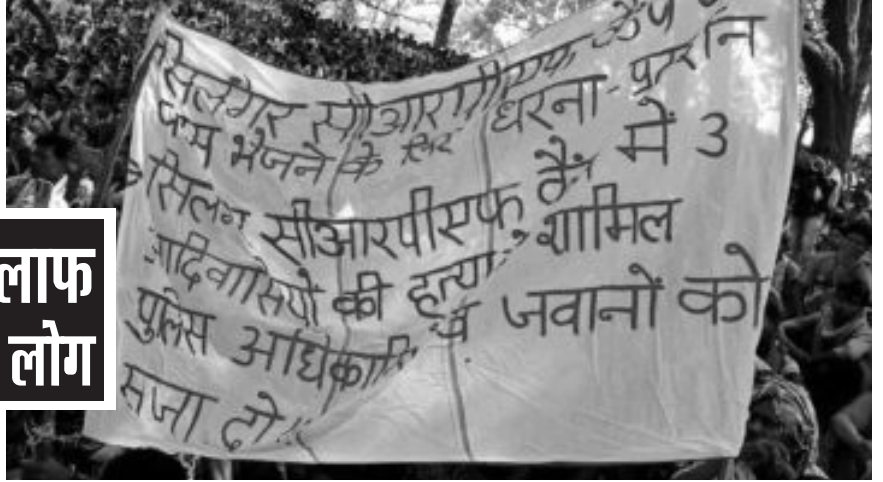 सिलंगेर सीआरपीएफ कैंप
भेजने के लिए धरना-प्रदर्शन
सिलगेर सीआरपीएफ कैंप में 3
आदिवासियों की हत्या में शामिल
पुलिस अधिकारी व जवानों को
सजा दो
लाफ
लोग